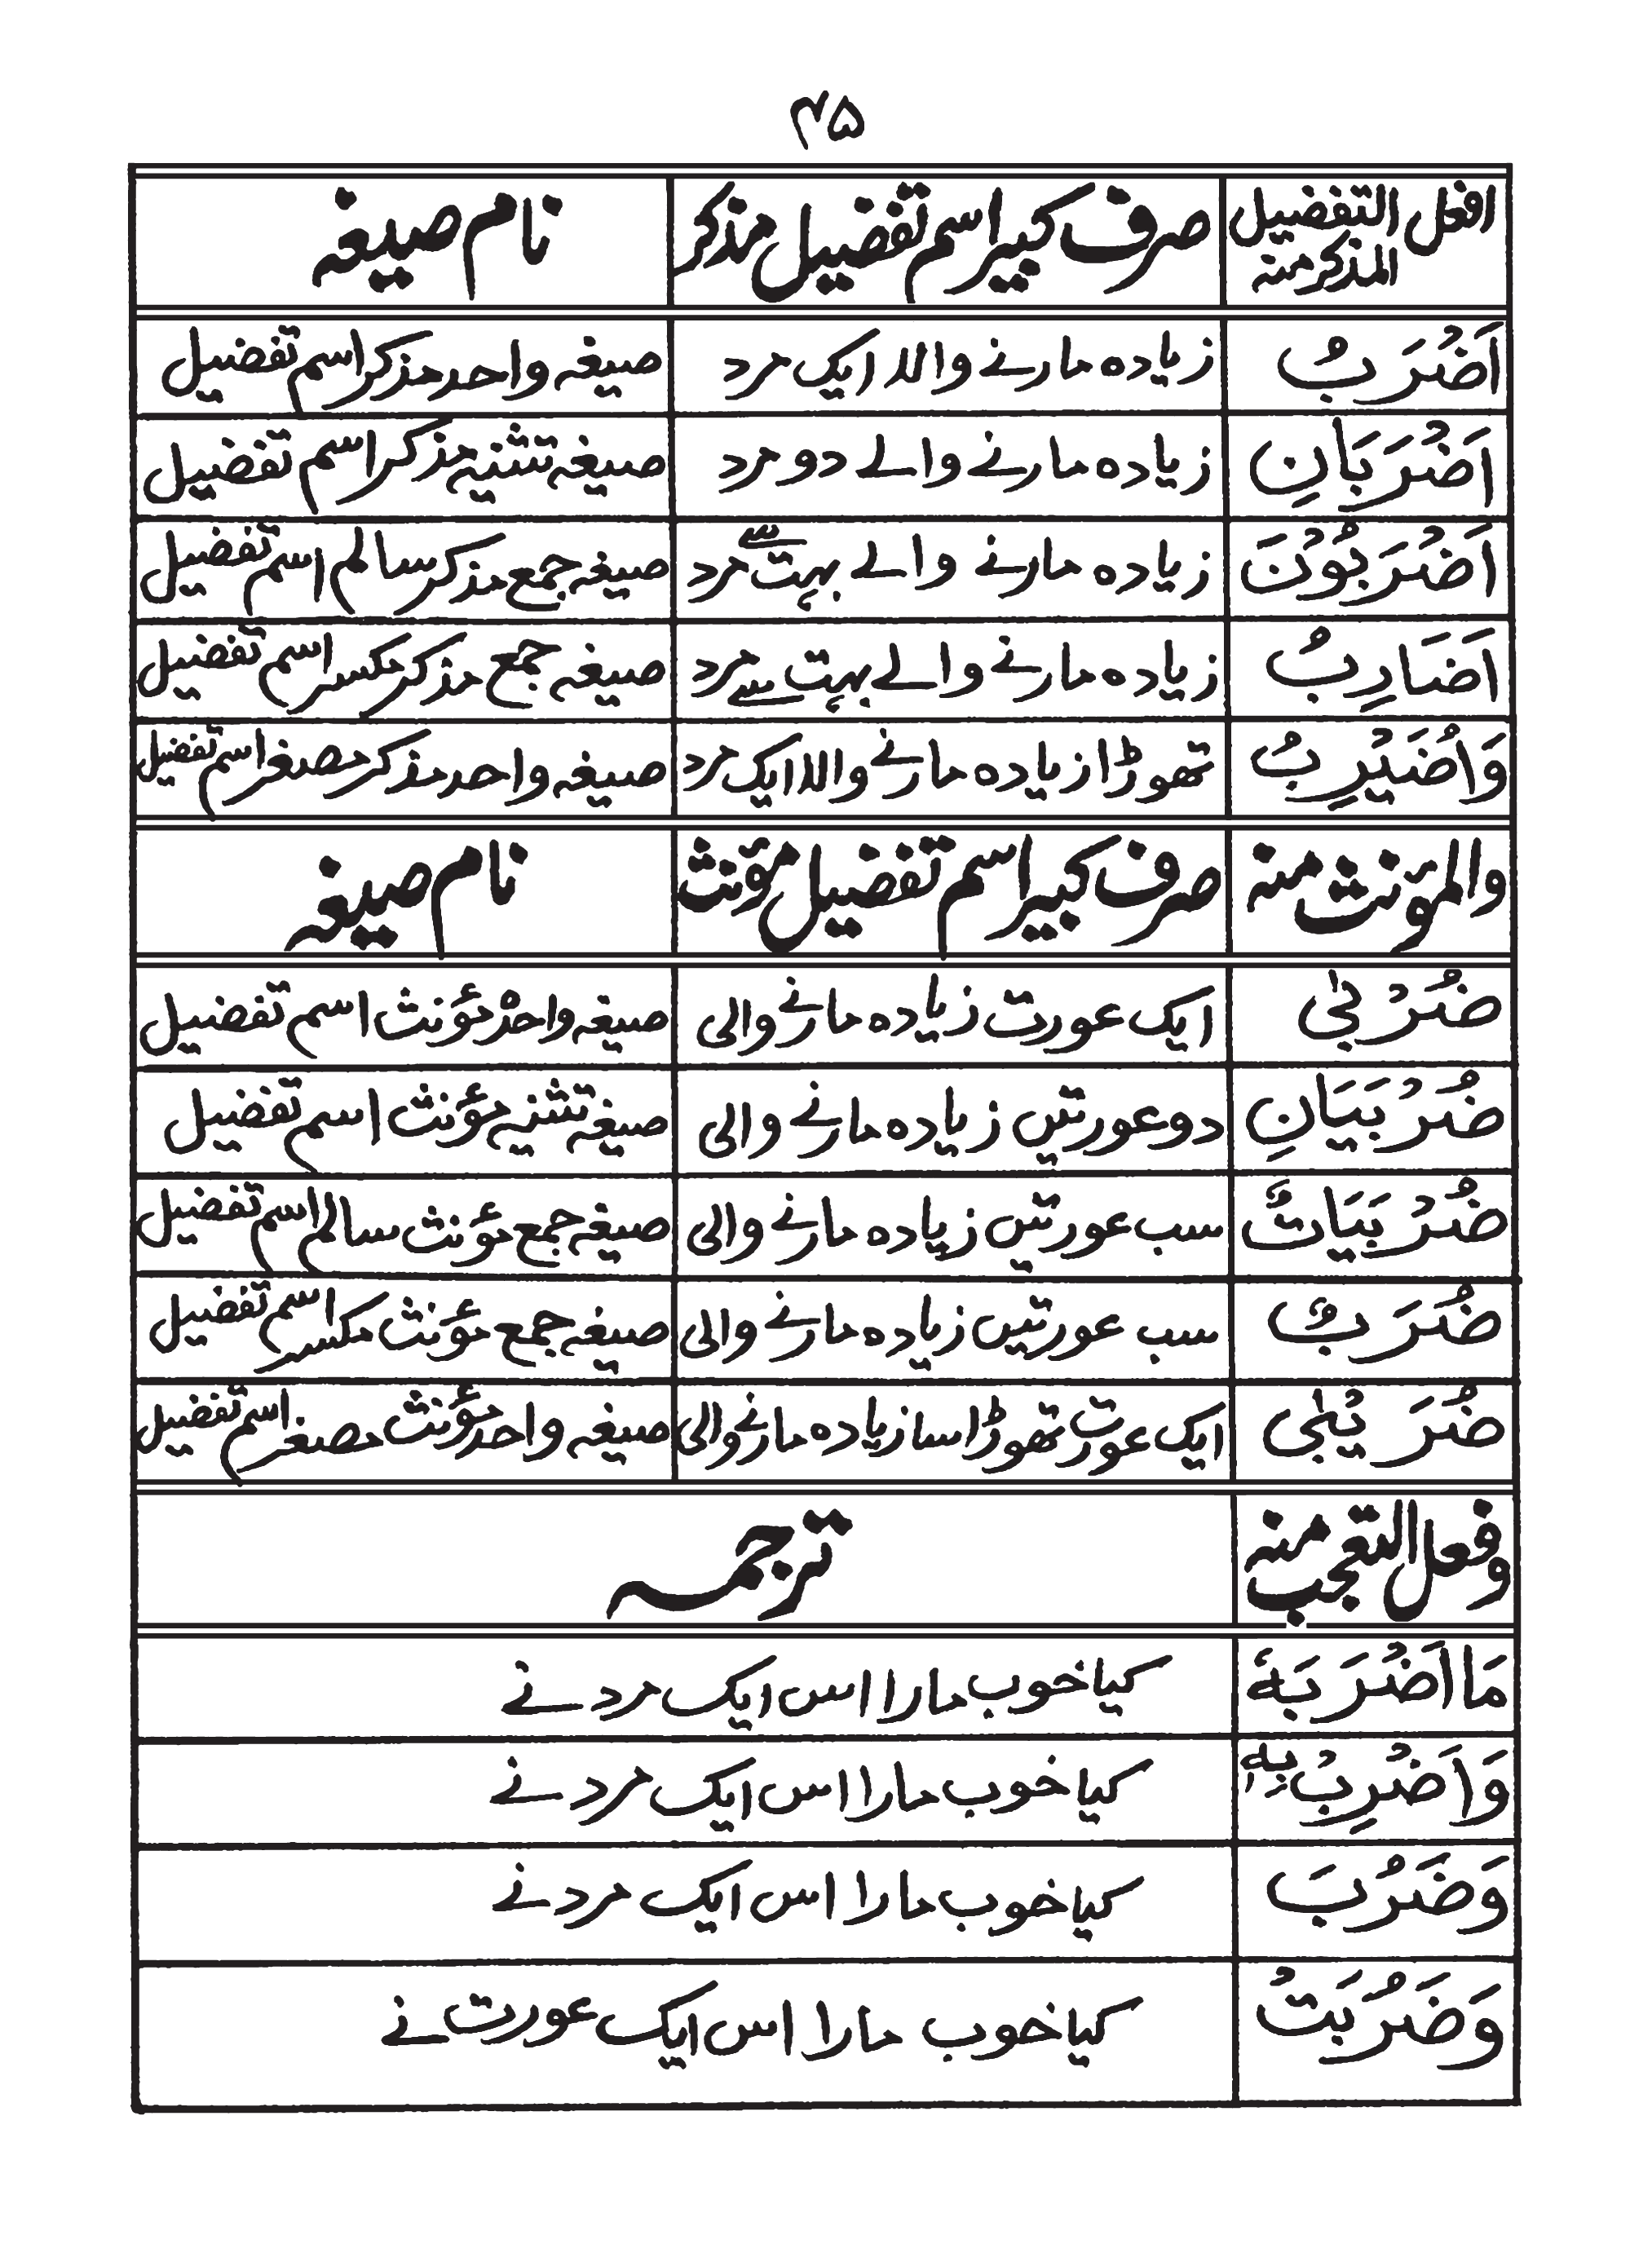 ۴۵
افعل التفضیل المذکر منہ | صرف کبیر اسم تفضیل مذکر | نام صیغہ
اَضْرَبُ | زیادہ مارنے والا ایک مرد | صیغہ واحد مذکر اسم تفضیل
اَضْرَبَانِ | زیادہ مارنے والے دو مرد | صیغہ تثنیہ مذکر اسم تفضیل
اَضْرَبُوْنَ | زیادہ مارنے والے بہت سے مرد | صیغہ جمع مذکر سالم اسم تفضیل
اَضَارِبُ | زیادہ مارنے والے بہت سے مرد | صیغہ جمع مذکر مکسر اسم تفضیل
وَاُضَيْرِبُ | تھوڑا زیادہ مارنے والا ایک مرد | صیغہ واحد مذکر مصغر اسم تفضیل
والمؤنث منہ | صرف کبیر اسم تفضیل مؤنث | نام صیغہ
ضُرْبٰى | ایک عورت زیادہ مارنے والی | صیغہ واحد مؤنث اسم تفضیل
ضُرْبَيَانِ | دو عورتیں زیادہ مارنے والی | صیغہ تثنیہ مؤنث اسم تفضیل
ضُرْبَيَاتٌ | سب عورتیں زیادہ مارنے والی | صیغہ جمع مؤنث سالم اسم تفضیل
ضُرَبٌ | سب عورتیں زیادہ مارنے والی | صیغہ جمع مؤنث مکسر اسم تفضیل
ضُرَيْبٰى | ایک عورت تھوڑا سا زیادہ مارنے والی | صیغہ واحد مؤنث مصغر اسم تفضیل
وفعل التعجب منہ | ترجمہ
مَا اَضْرَبَهٗ | کیا خوب مارا اس ایک مرد نے
وَاَضْرِبْ بِهٖ | کیا خوب مارا اس ایک مرد نے
وَضَرُبَ | کیا خوب مارا اس ایک مرد نے
وَضَرُبَتْ | کیا خوب مارا اس ایک عورت نے